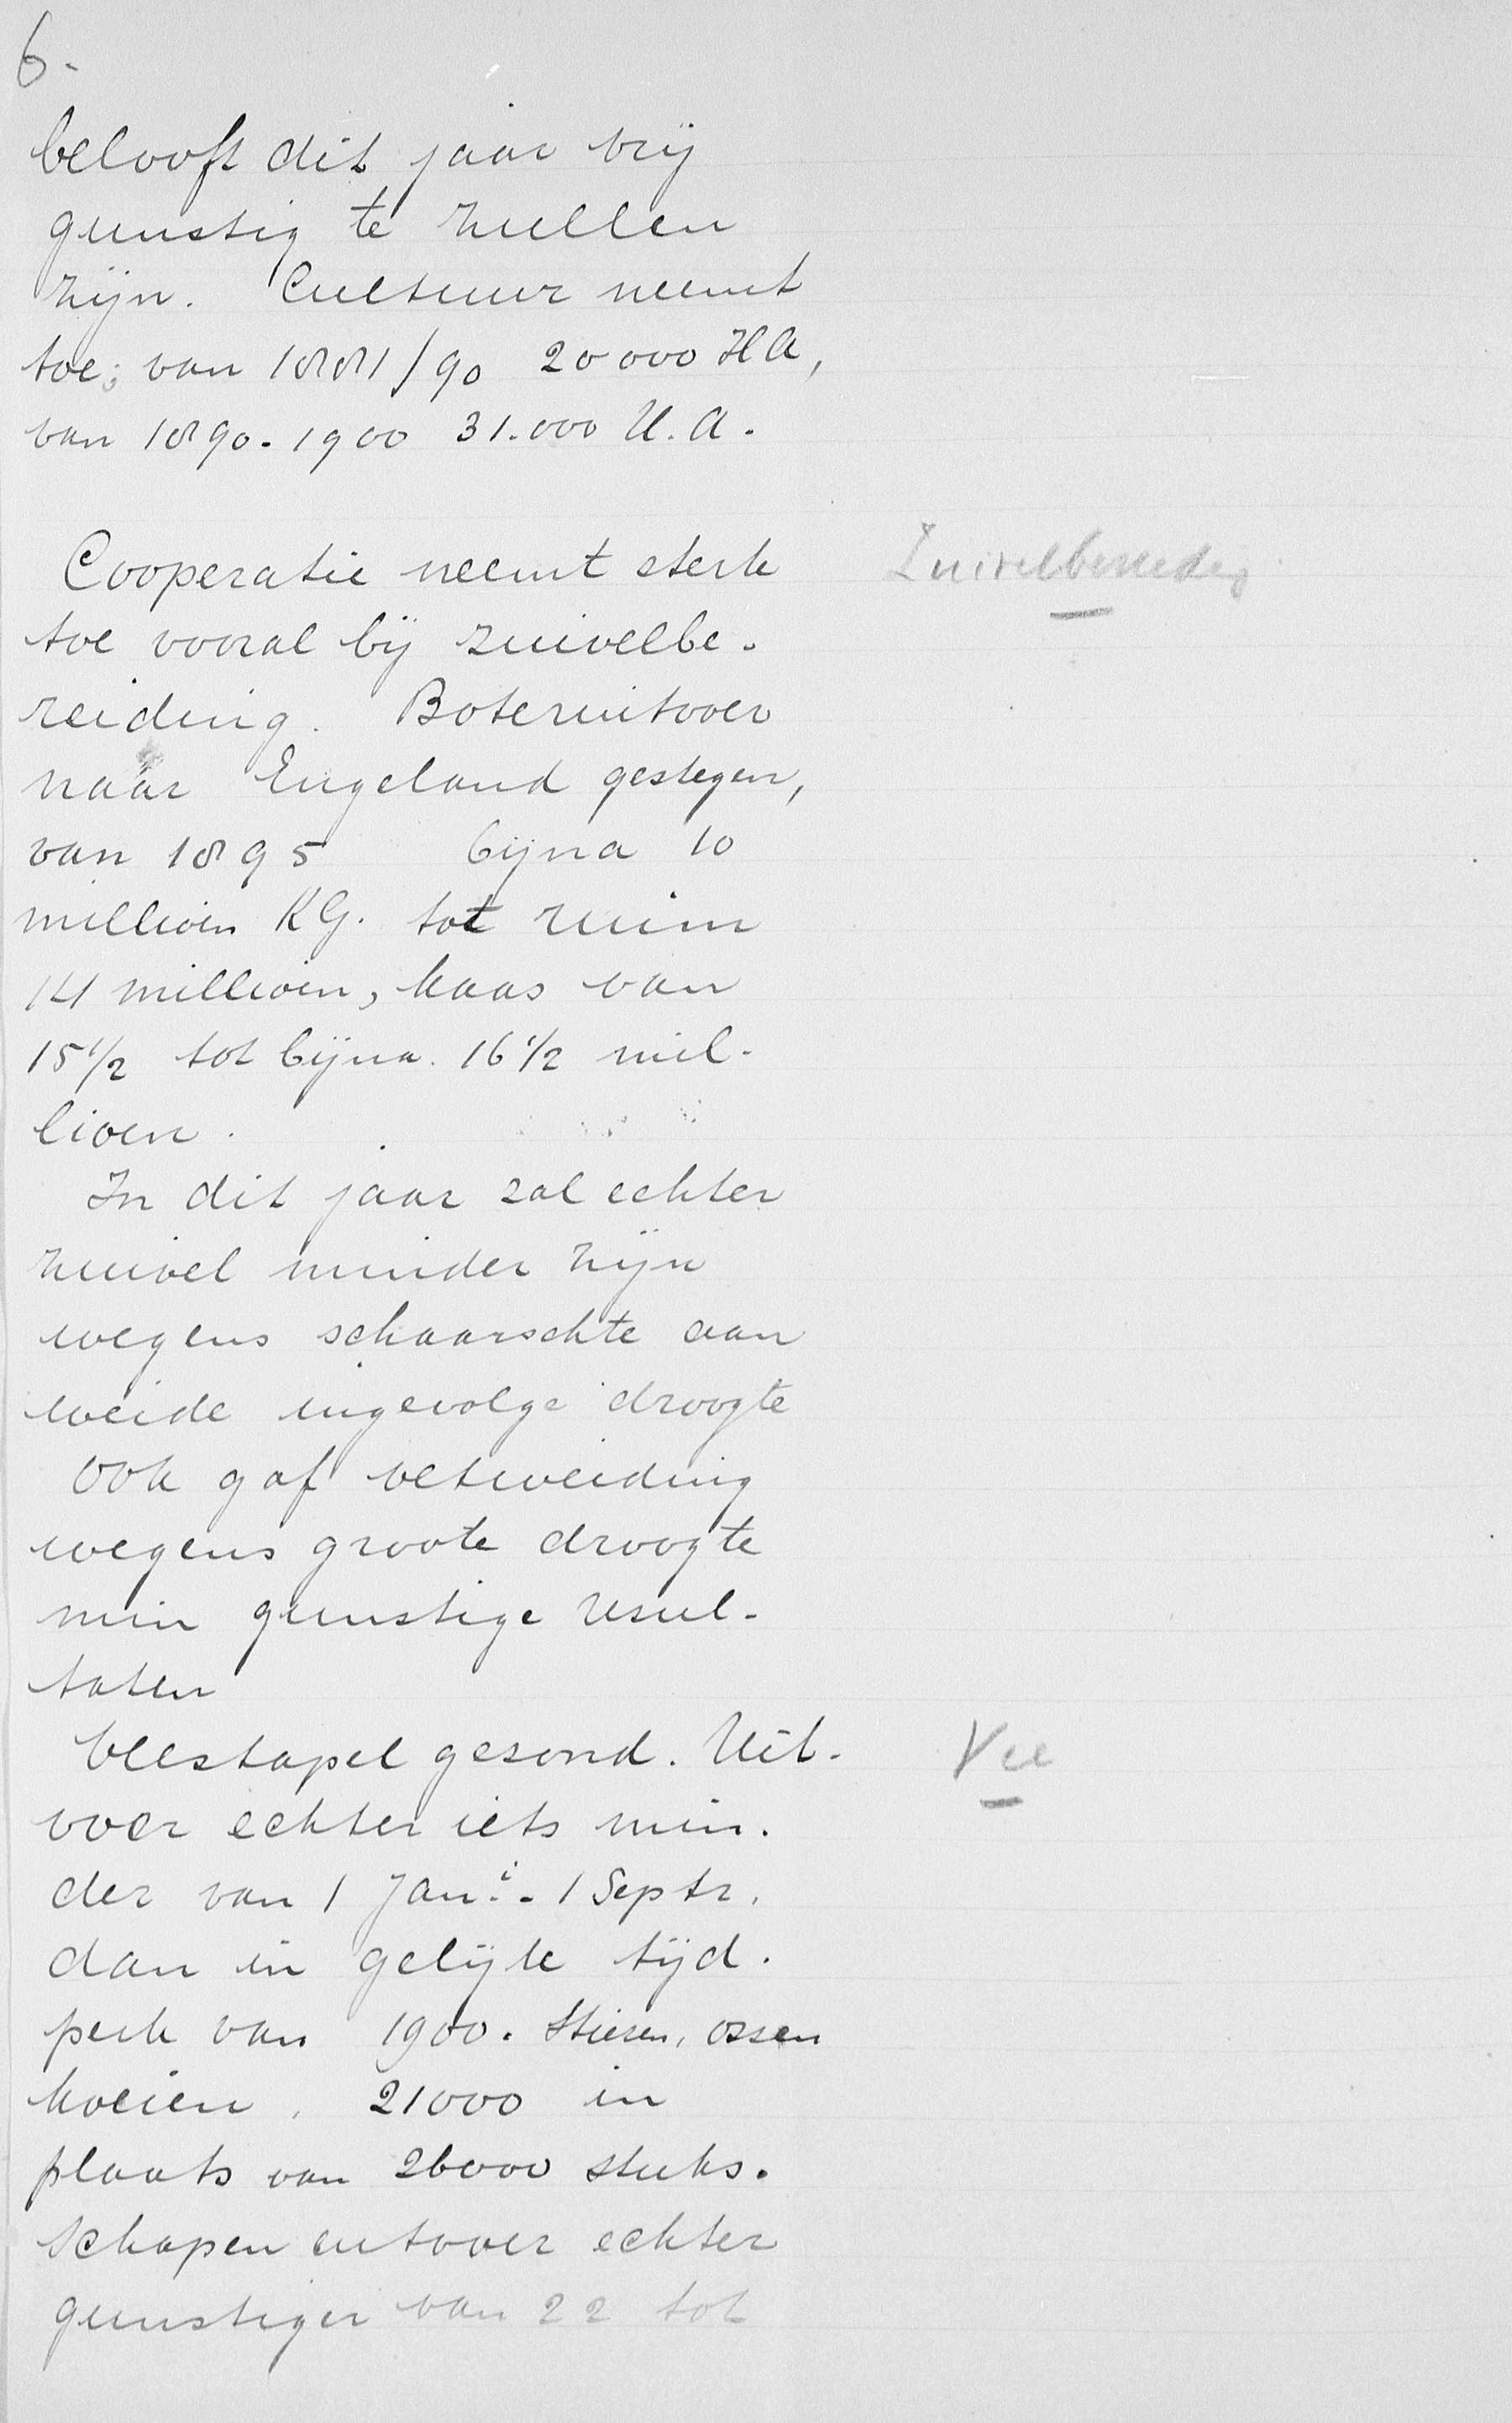 6.
belooft dit jaar vrij
gunstig te zullen
zijn. Cultuur neemt
toe; van 1881/90 20000 HA,
van 1890-1900 31.000 H.A.
Cooperatie neemt sterk
Zuivelbereiding
toe vooral bij zuivelbe-
reiding. Boteruitvoer
naar Engeland gestegen,
van 1895 bijna 10
millioen KG. tot ruim
14 millioen, kaas van
15 1/2 tot bijna 16 1/2 mil-
lioen.
In dit jaar zal echter
zuivel minder zijn
wegens schaarschte aan
weide ingevolge droogte
Ook gaf vetweiding
wegens groote droogte
min gunstige resul-
taten
Veestapel gezond. Uit-
Vee
voer echter iets min-
der van 1 Jan.i - 1 Septr.
dan in gelijk tijd-
perk van 1900. Stieren, ossen
koeien, 21000 in
plaats van 26000 stuks.
Schapen uitvoer echter
gunstiger van 22 tot